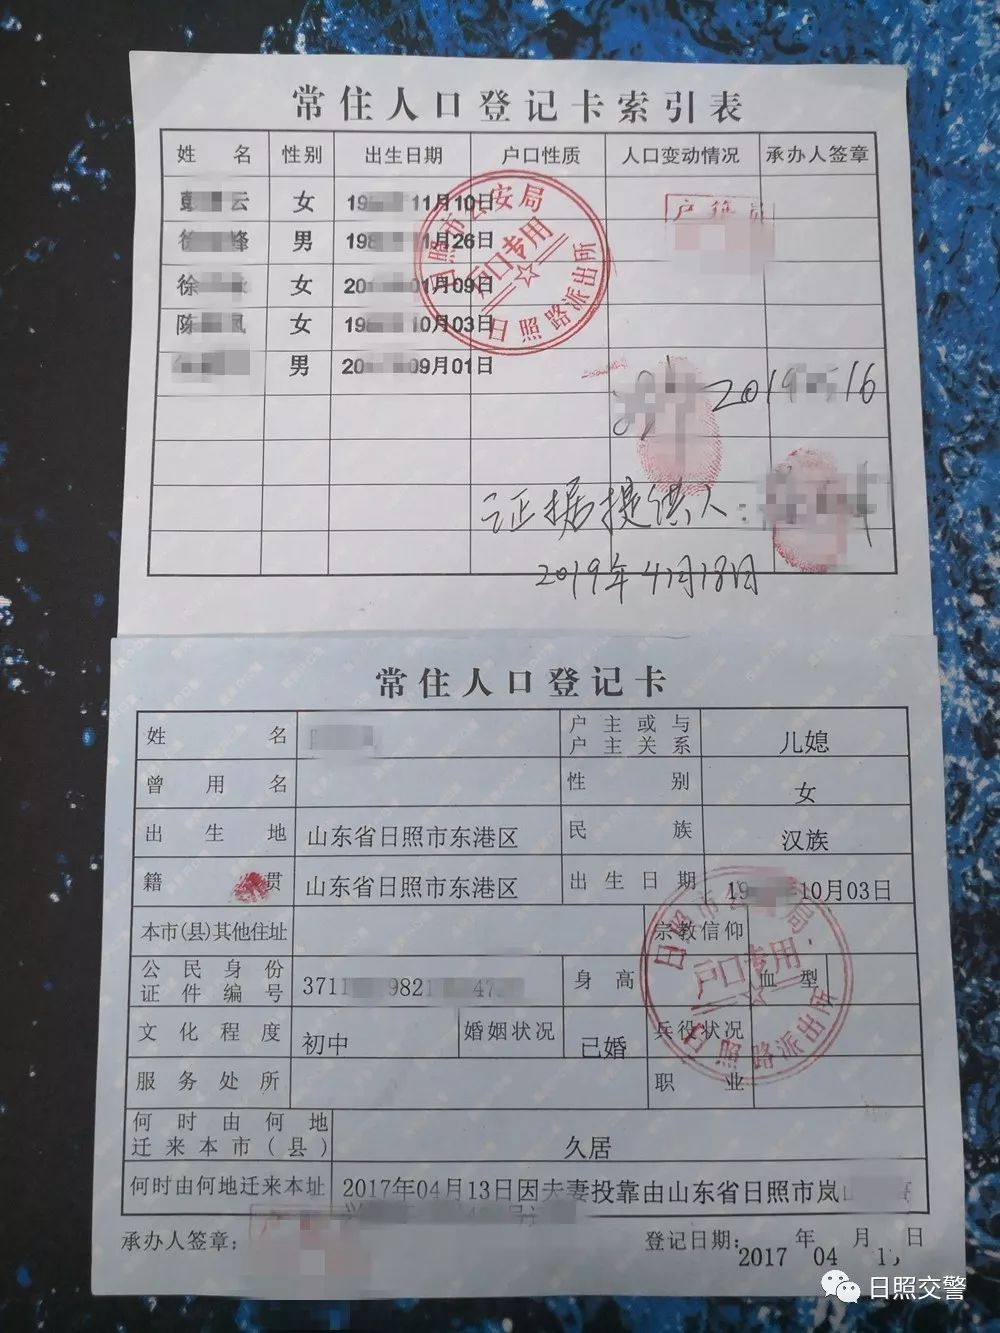 常住人口登记卡索引表
姓名 性别 出生日期 户口性质 人口变动情况 承办人签章
云 女 19 11月10日
峰 男 198 1月26日
徐 女 20 01月09日
陈 凤 女 198 10月03日
男 20 09月01日
日照市公安局
户口专用
日照路派出所
户籍员
2019 16
证据提供人:
2019年4月18日
常住人口登记卡
姓名 户主或与户主关系 儿媳
曾用名 性别 女
出生地 山东省日照市东港区 民族 汉族
籍贯 山东省日照市东港区 出生日期 19 10月03日
本市(县)其他住址 宗教信仰
公民身份证件编号 3711 9821 47 身高 血型
文化程度 初中 婚姻状况 已婚 兵役状况
服务处所 职业
何时由何地迁来本市(县) 久居
何时由何地迁来本址 2017年04月13日因夫妻投靠由山东省日照市岚
日照市 局
户口专用
日照路派出所
承办人签章: 登记日期: 年 月 日
2017 04
日照交警